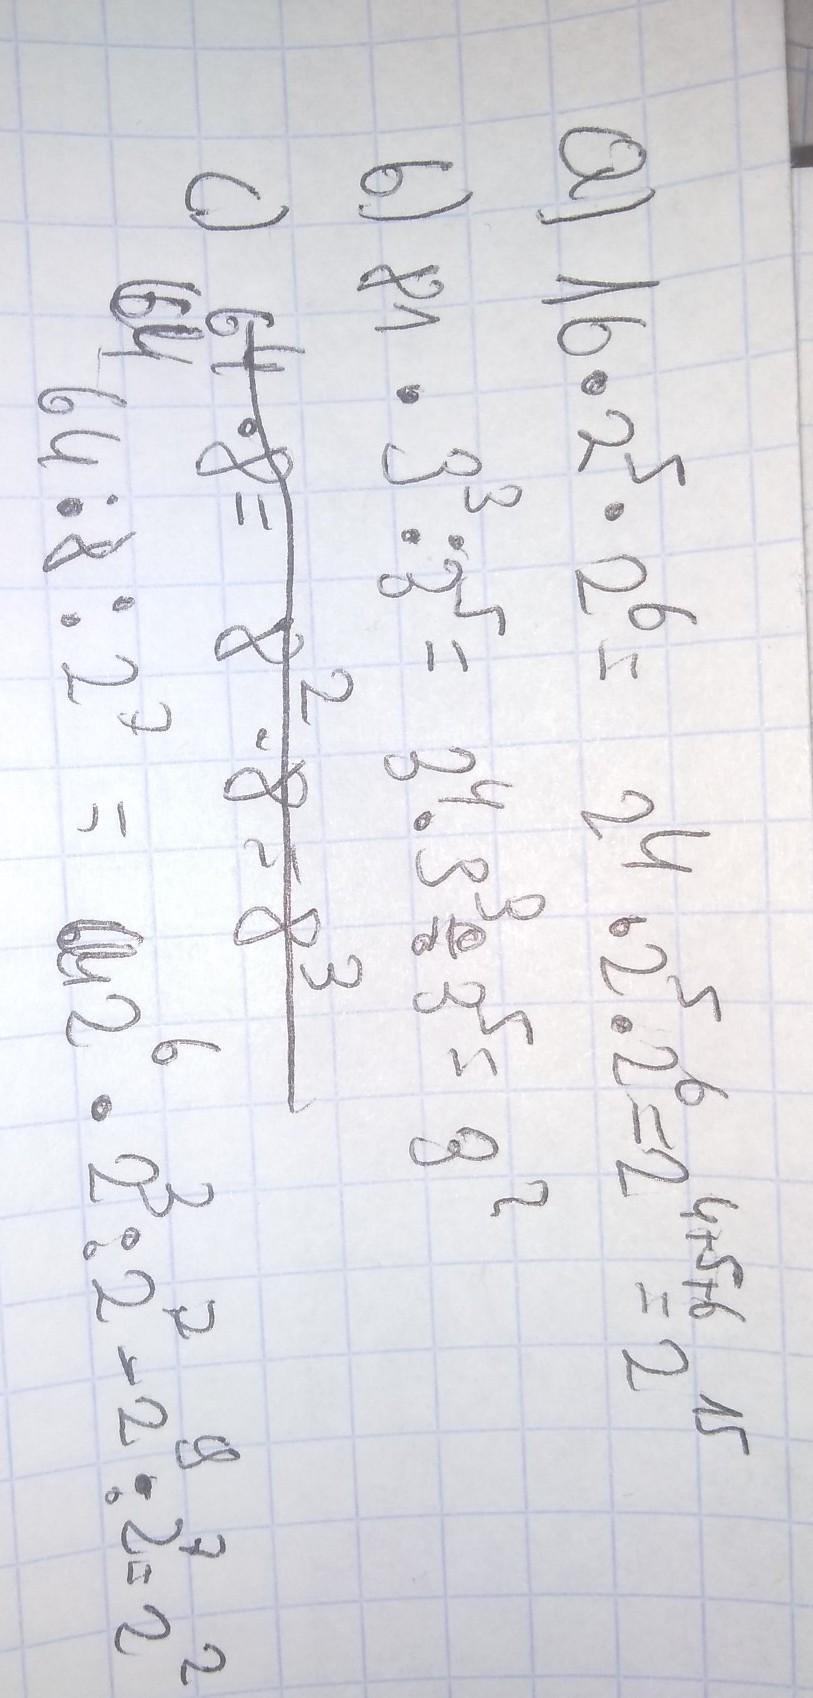 a) 16 · 2⁵ · 2⁶ = 2⁴ · 2⁵ · 2⁶ = 2⁴⁺⁵⁺⁶ = 2¹⁵
b) 81 · 3³ : 3⁵ = 3⁴ · 3³ : 3⁵ = 3²
c) 64 · 8 = 8² · 8 = 8³
64 64 · 8 : 2⁷ = 2⁶ · 2³ : 2⁷ = 2⁹ : 2⁷ = 2²